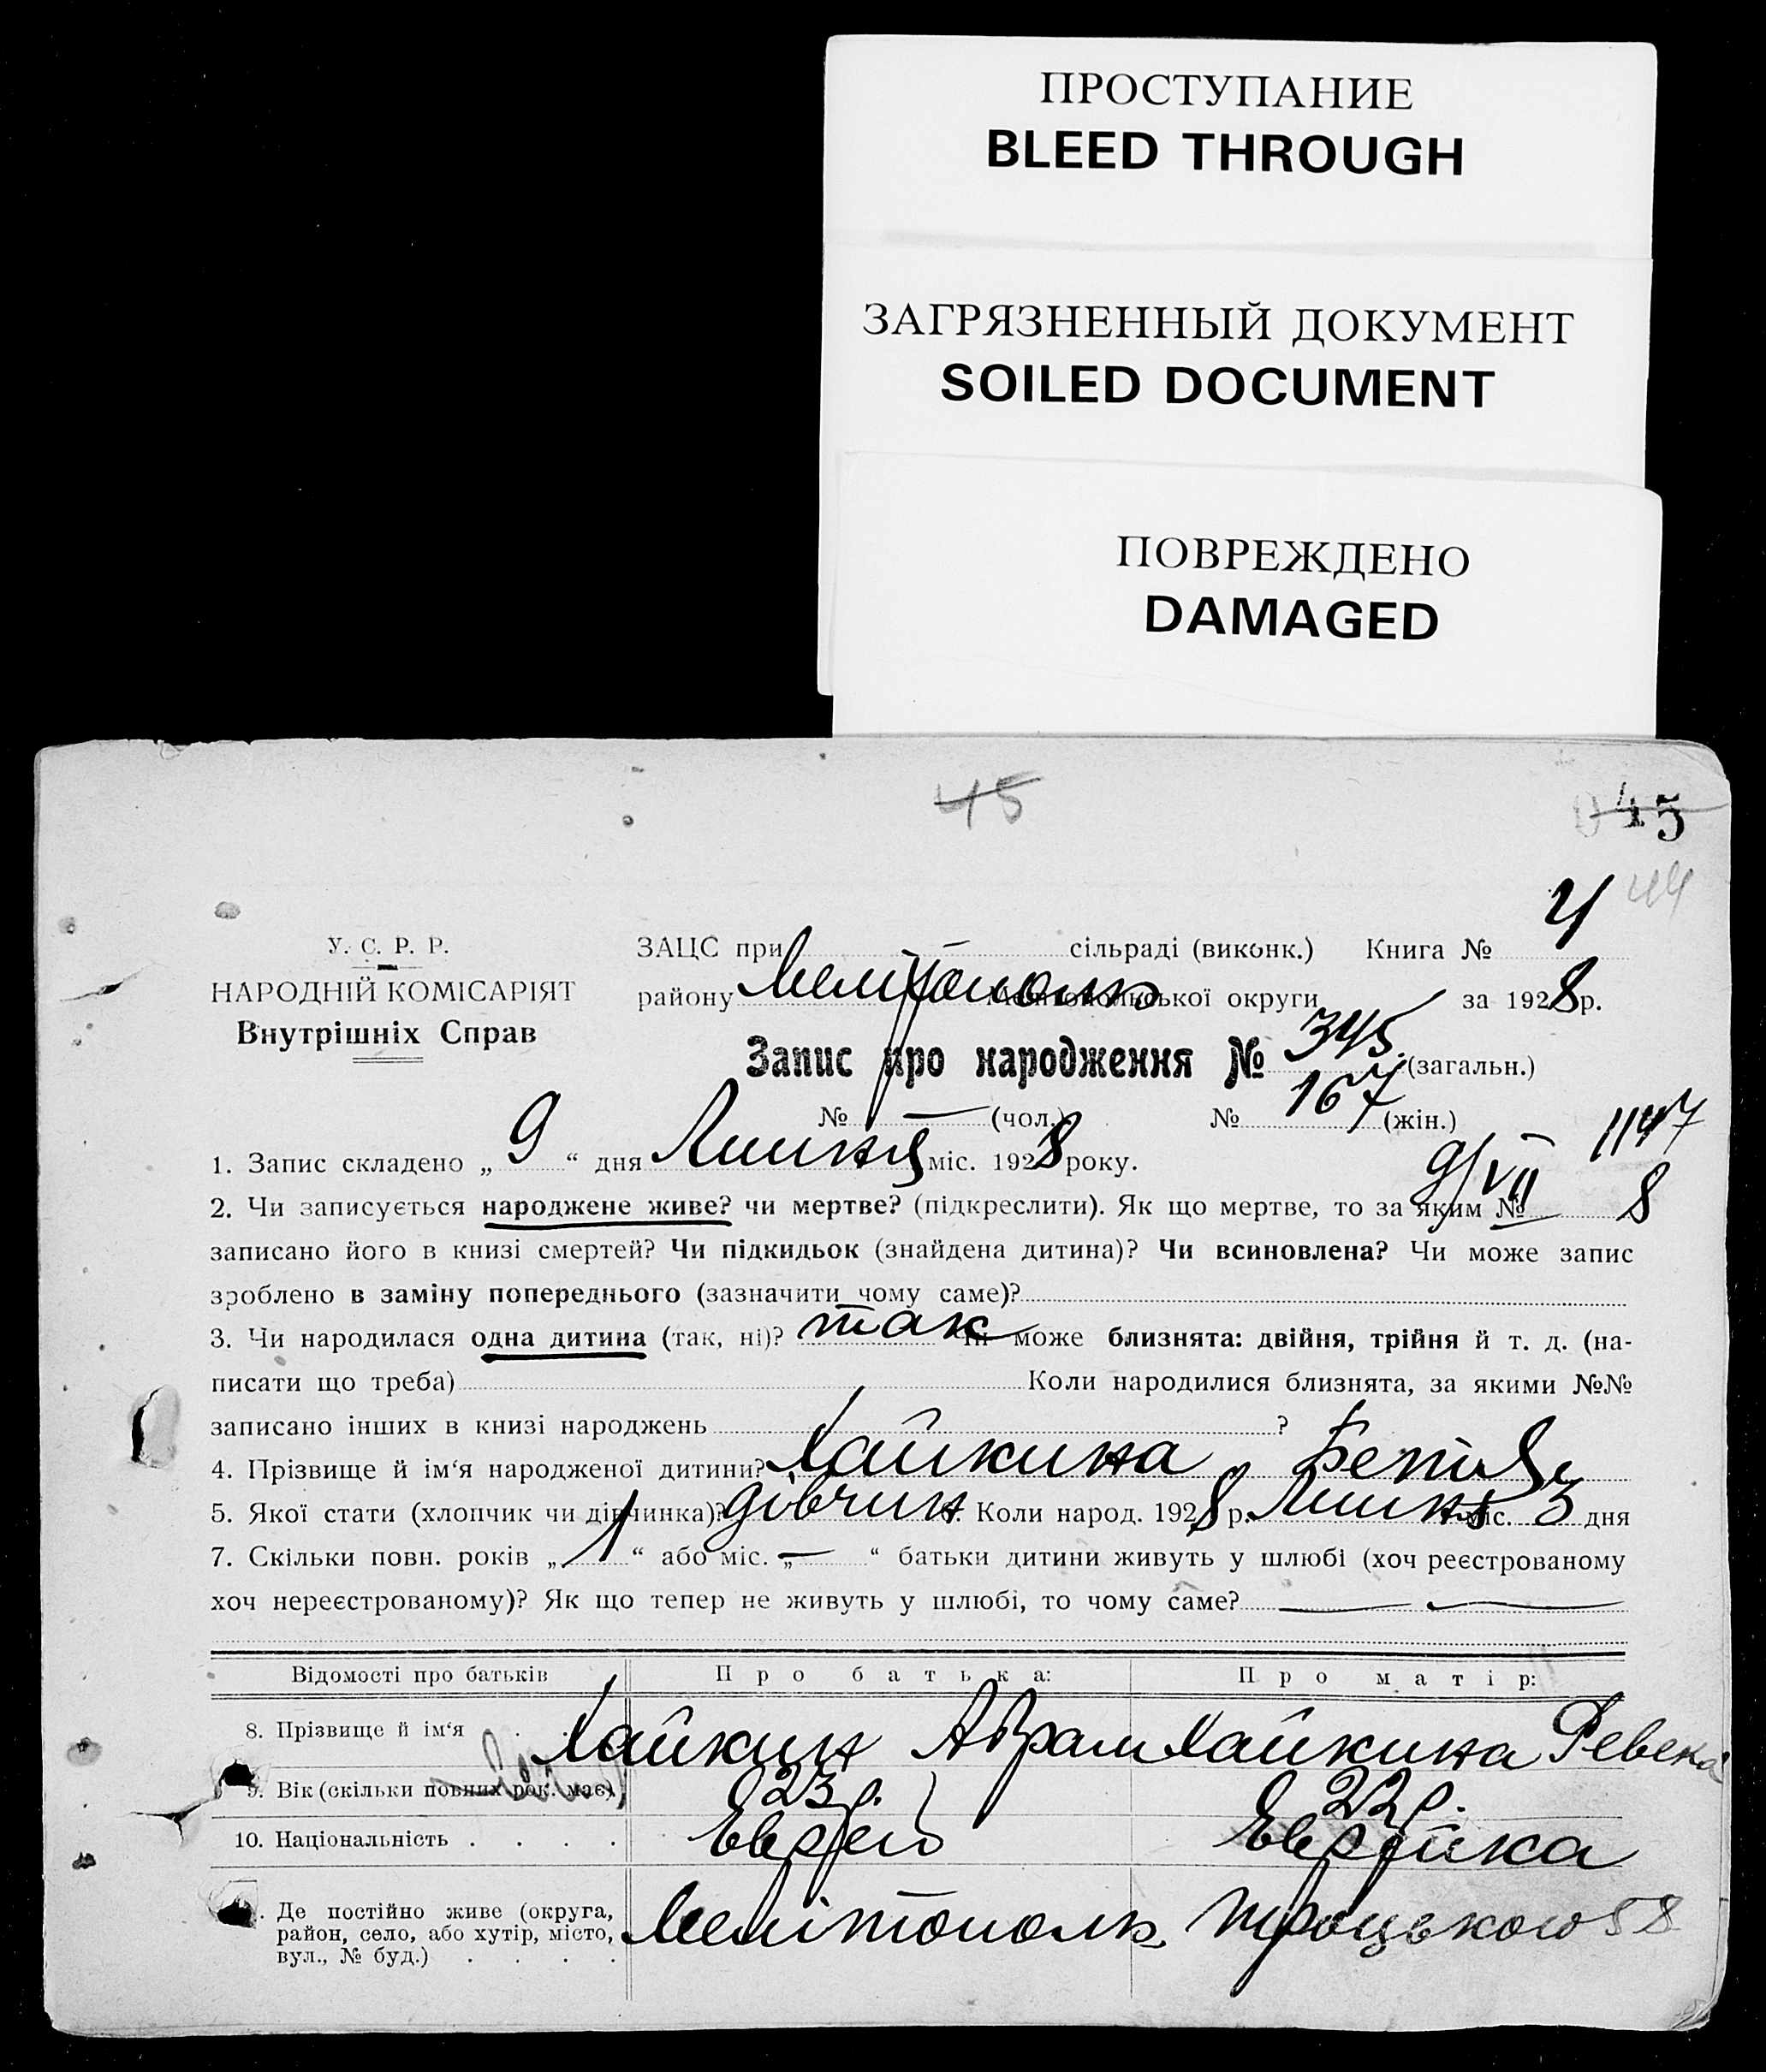 ПРОСТУПАНИЕ
BLEED THROUGH
ЗАГРЯЗНЕННЫЙ ДОКУМЕНТ
SOILED DOCUMENT
ПОВРЕЖДЕНО
DAMAGED
45
45
44
У. С. Р. Р.
НАРОДНІЙ КОМІСАРІЯТ
Внутрішніх Справ
ЗАЦС при сільраді (виконк.) Книга № 4
району Мелітополь Мелітопольської округи за 1928 р.
Запис про народження № 345 (загальн.)
№ — (чол.) № 167 (жін.)
1147
1. Запис складено „ 9 “ дня Липня міс. 1928 року.
9/VII 8
2. Чи записується народжене живе? чи мертве? (підкреслити). Як що мертве, то за яким №
записано його в книзі смертей? Чи підкидьок (знайдена дитина)? Чи всиновлена? Чи може запис
зроблено в заміну попереднього (зазначити чому саме)?
3. Чи народилася одна дитина (так, ні)? так Чи може близнята: двійня, трійня й т. д. (на-
писати що треба) Коли народилися близнята, за якими №№
записано інших в книзі народжень ?
4. Прізвище й ім‘я народженої дитини? Хайкина Бетя
5. Якої стати (хлопчик чи дівчинка)? дівчин 6. Коли народ. 1928 р. Липня міс. 3 дня
7. Скільки повн. років „ 1 “ або міс. „ — “ батьки дитини живуть у шлюбі (хоч реєстрованому
хоч нереєстрованому)? Як що тепер не живуть у шлюбі, то чому саме? — —
Відомості про батьків Про батька: Про матір:
8. Прізвище й ім‘я Хайкин Абрам Хайкина Ревека
9. Вік (скільки повних рок. має) 23 р. 22 р.
10. Національність . . . . Еврей Еврейка
Де постійно живе (округа,
район, село, або хутір, місто,
вул., № буд.) . . . .
Мелітополь Троцького 58